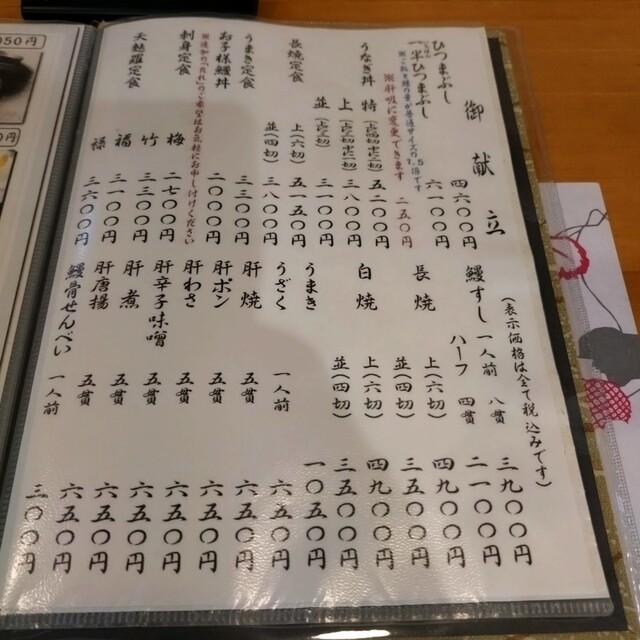 御献立
ひつまぶし 四六〇〇円
一半ひつまぶし 六一〇〇円
※ご飯と鰻の量が普通サイズの1.5倍です
※肝吸に変更できます 二五〇円
うなぎ丼 特 五二〇〇円
上 三八〇〇円
並 三一〇〇円
長焼定食 上(六切) 五一五〇円
並(四切) 三八〇〇円
うまき定食 三三〇〇円
お子様鰻丼 二〇〇〇円
※追加の「たれ」のご希望はお気軽にお申し付けください
刺身定食 梅 二七〇〇円
竹 三三〇〇円
天麩羅定食 福 三一〇〇円
禄 三六〇〇円
(表示価格は全て税込みです)
鰻すし 一人前 八貫 三九〇〇円
ハーフ 四貫 二一〇〇円
長焼 上(六切) 四九〇〇円
並(四切) 三五〇〇円
白焼 上(六切) 四九〇〇円
並(四切) 三五〇〇円
うまき 一〇五〇円
うざく 一人前 六五〇円
肝焼 五貫 六五〇円
肝ポン 五貫 六五〇円
肝わさ 五貫 六五〇円
肝辛子味噌 五貫 六五〇円
肝煮 五貫 六五〇円
肝唐揚 五貫 六五〇円
鰻骨せんべい 一人前 三〇〇円
050円
0円